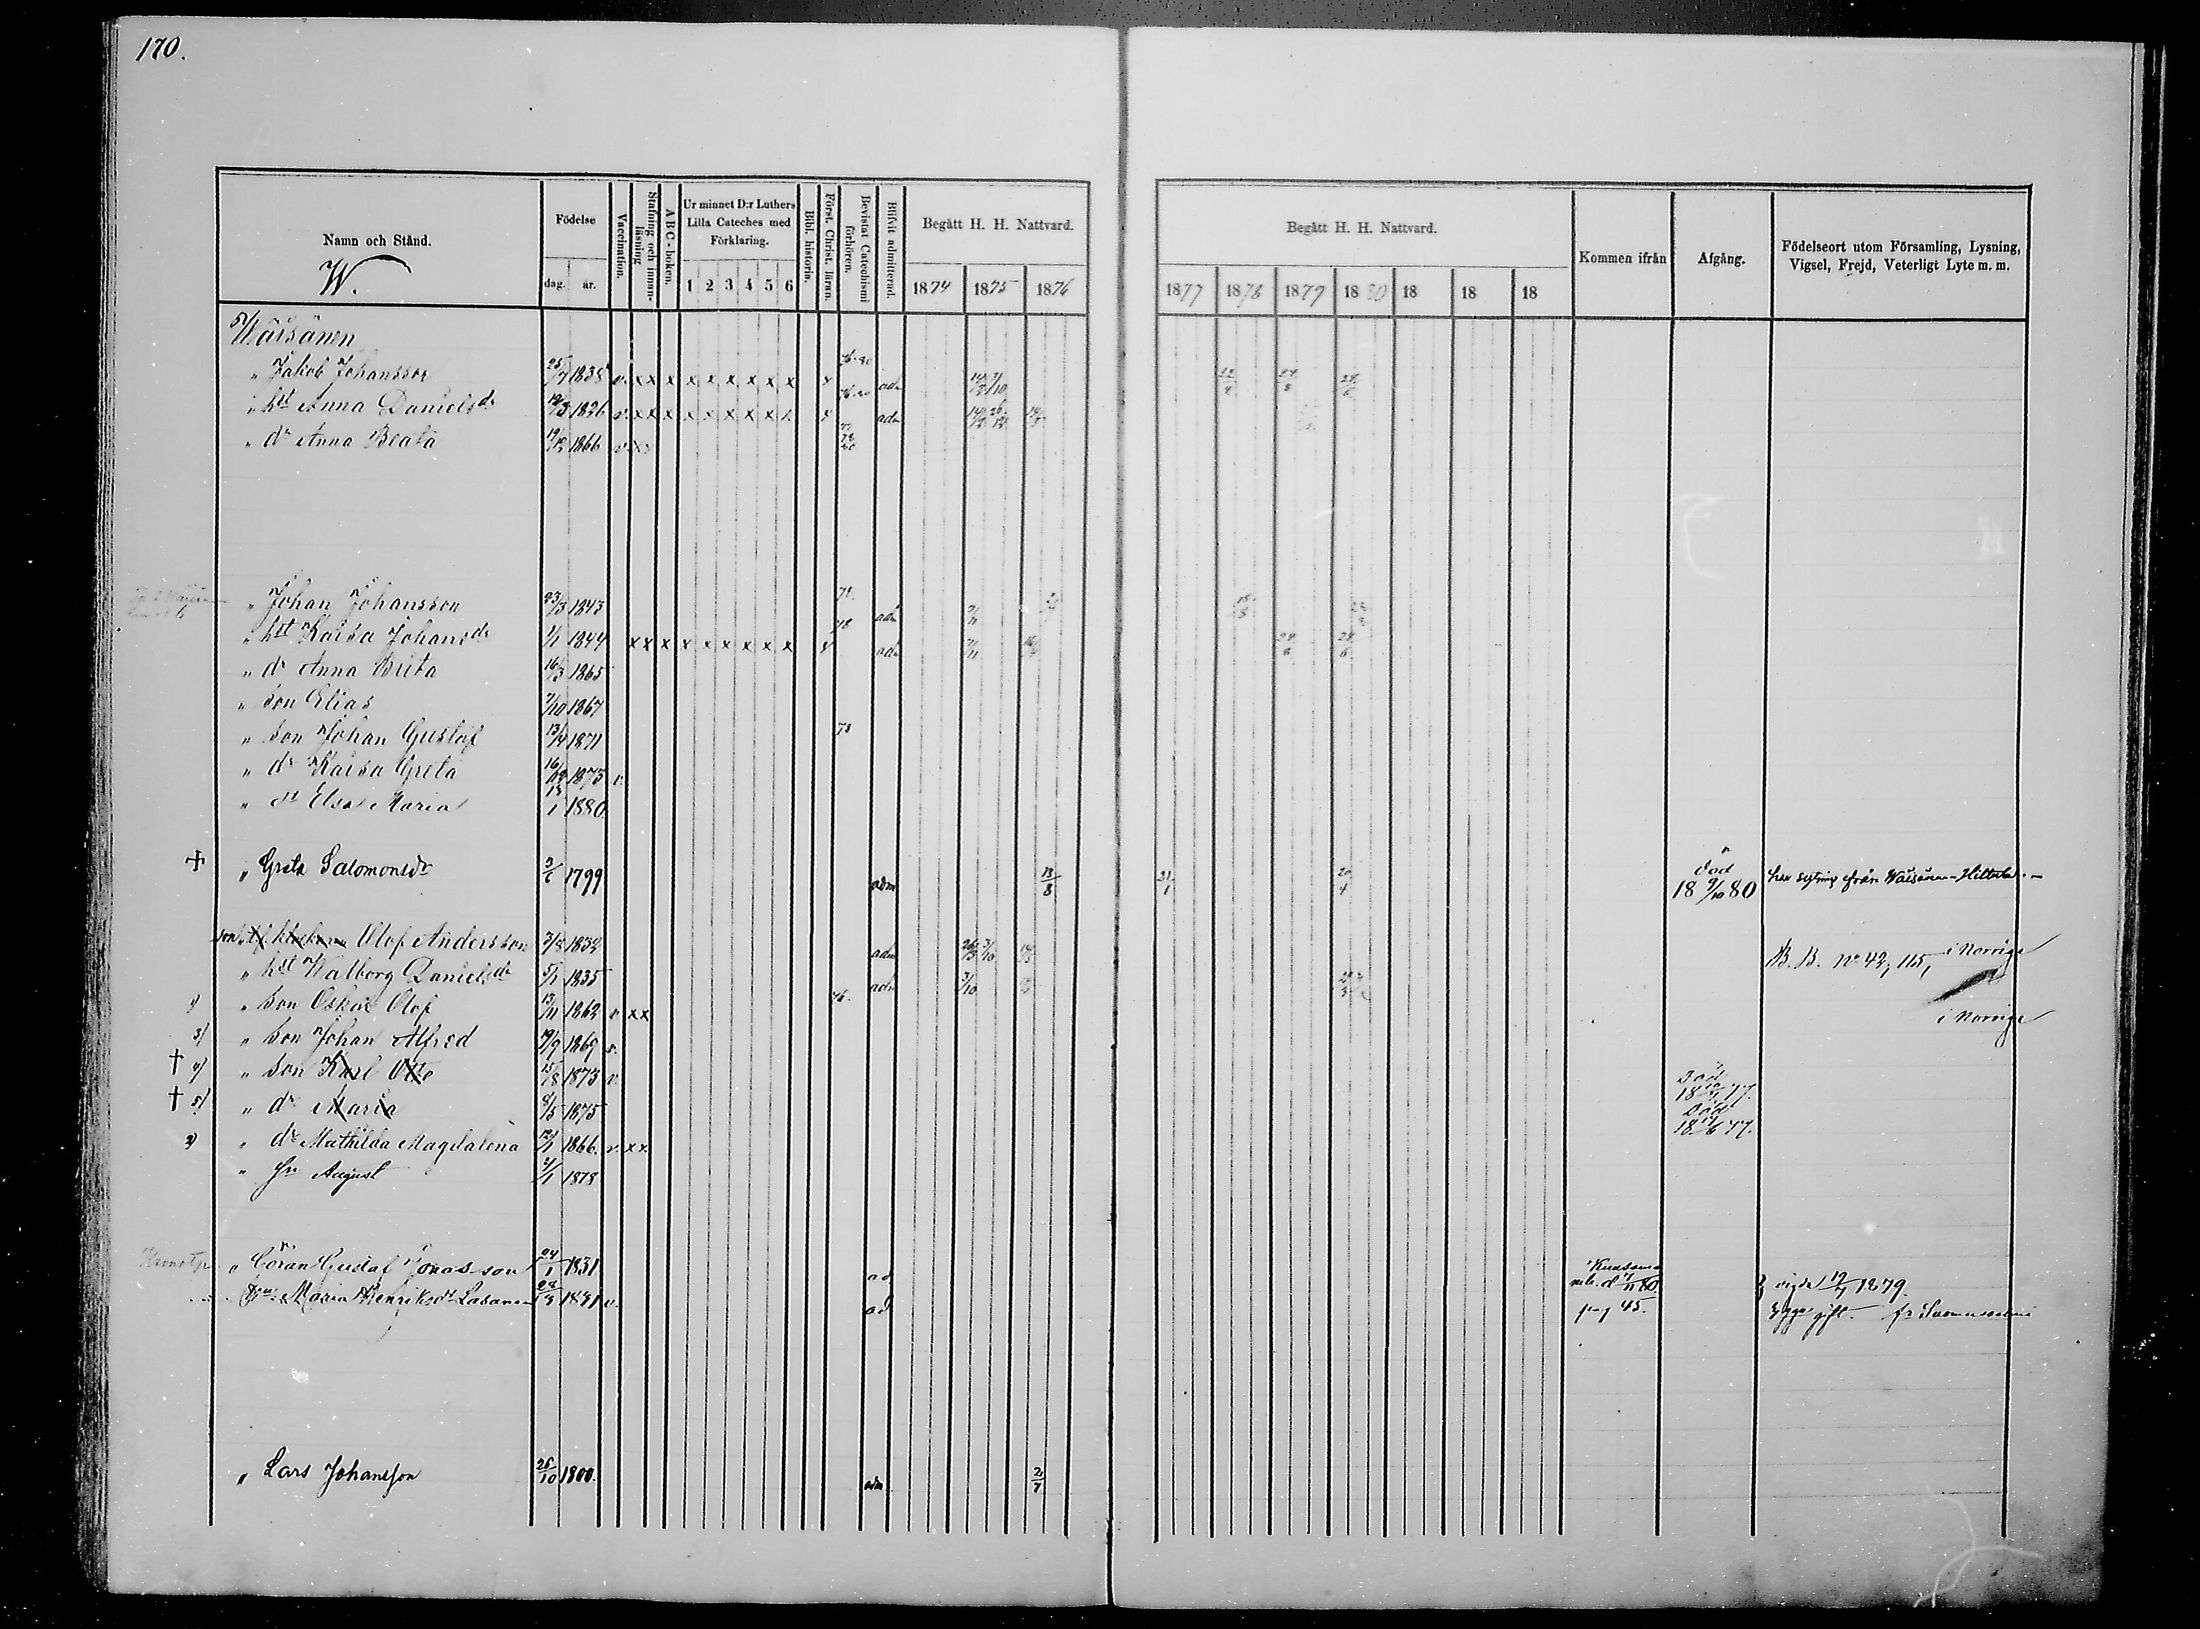 170.
Namn och Stånd.
W.
Födelse
dag. år.
Vaccination.
Stafning och innan-läsning
ABC-boken.
Ur minnet D:r Luthers Lilla Cateches med Förklaring.
1 2 3 4 5 6
Bibl. historia.
Först. Christ. läran.
Bevistat Catechismi förhören.
Blifvit admitterad.
Begått H. H. Nattvard.
1874 1875 1876
Begått H. H. Nattvard.
1877 1878 1879 1880 18 18 18
Kommen ifrån
Afgång.
Födelseort utom Församling, Lysning, Vigsel, Frejd, Veterligt Lyte m. m.
Wäisänen
" Jakob Johansson 25/7 1838 v. x x x x x x x x x x adm
" hst Anna Danielsdr 1826 v. x x x x x x x x x adm
" dr Anna Beata 19/12 1866 v. x x
" Johan Johansson 23/3 1843 adm
" hst Kaisa Johansdr 1/1 1844 x x x x x x x x x adm
" dr Anna Brita 16/3 1865
" son Elias 7/10 1867
" son Johan Gustaf 13/4 1871
" dr Kaisa Greta 16/12 1875 v.
" dr Elsa Maria 13/1 1880.
" Greta Salomonsdr 3/6 1799 adm 13/8 21/1 20/4 död 18 9/10 80 har sytning från Wäisänen
son Olof Andersson 3/8 1832 adm B. B. No 42, 115, i Norrige
" hst Walborg Danielsdr 5/1 1835 adm
1) " son Oskar Olof 13/11 1862 v. x x i Norrige
3) " son Johan Alfred 19/9 1869 v.
† 4) " son Karl Otto 15/8 1873 v. Död 18 77.
† 5) " dr Maria 8/5 1875 Död 18 77.
2) " dr Mathilda Magdalena 12/1 1866. v. x x.
" sn August 2/1 1878
" Göran Gustaf Jonasson 24/1 1831 ad Kuusamo
" Maria Henriksdr 28/3 1831 v. ad pag 45. vigda 1879.
gift.
" Lars Johansson 26/10 1800. adm 2/7